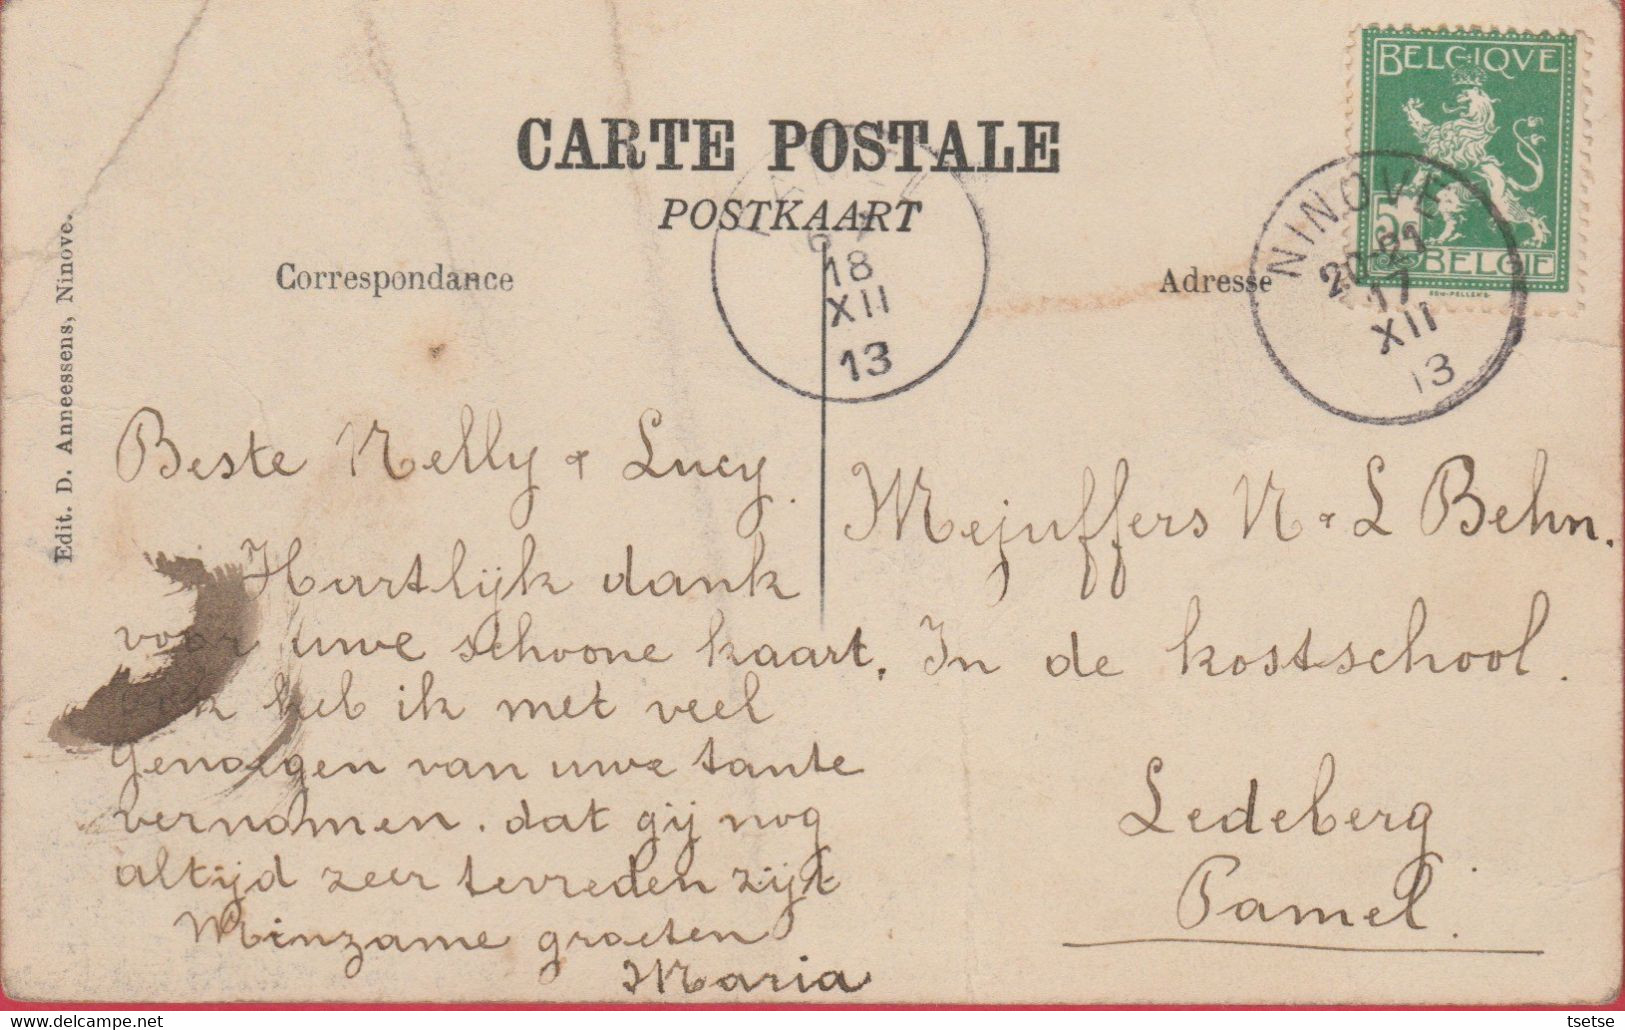 CARTE POSTALE
POSTKAART
Correspondance
Adresse
BELGIQVE
5c
BELGIE
NINOVE
20-21
17
XII
13
18
XII
13
Edit. D. Anneessens, Ninove.
Beste Nelly & Lucy.
Hartlijk dank
voor uwe schoone kaart.
Ook heb ik met veel
genoegen van uwe tante
vernomen. dat gij nog
altijd zeer tevreden zijt
Minzame groeten
Maria
Mejuffers N & L Behn.
In de kostschool.
Ledeberg
Pamel.
tsetse